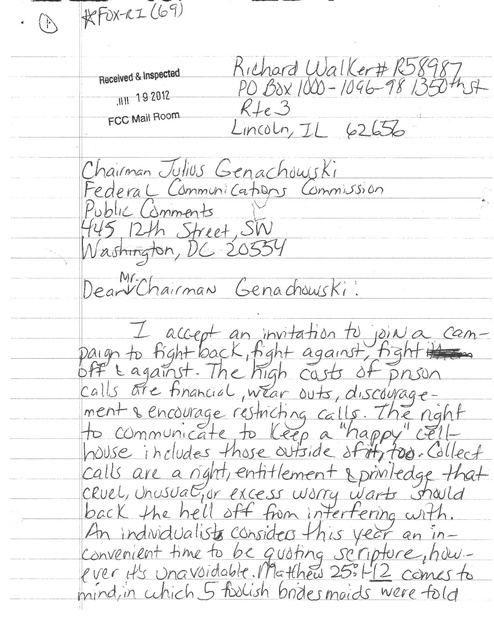 1
*FOX-RI (69)
Received & Inspected
JUL 19 2012
FCC Mail Room
Richard Walker# R58987
PO Box 1000-1096-98 1350th St
Rte 3
Lincoln, IL 62656
Chairman Julius Genachowski
Federal Communications Commission
Public Comments
445 12th Street, SW
Washington, DC 20554
Dear Mr. Chairman Genachowski:
I accept an invitation to join a cam-
paign to fight back, fight against, fight
off & against. The high costs of prison
calls are financial, wear outs, discourage-
ment & encourage restricting calls. The right
to communicate to keep a "happy" cell-
house includes those outside of it, too. Collect
calls are a right, entitlement & priviledge that
cruel, unusual, or excess worry warts should
back the hell off from interfering with.
An individualists considers this year an in-
convenient time to be quoting scripture, how-
ever it's unavoidable. Matthew 25:1-12 comes to
mind, in which 5 foolish bridesmaids were told